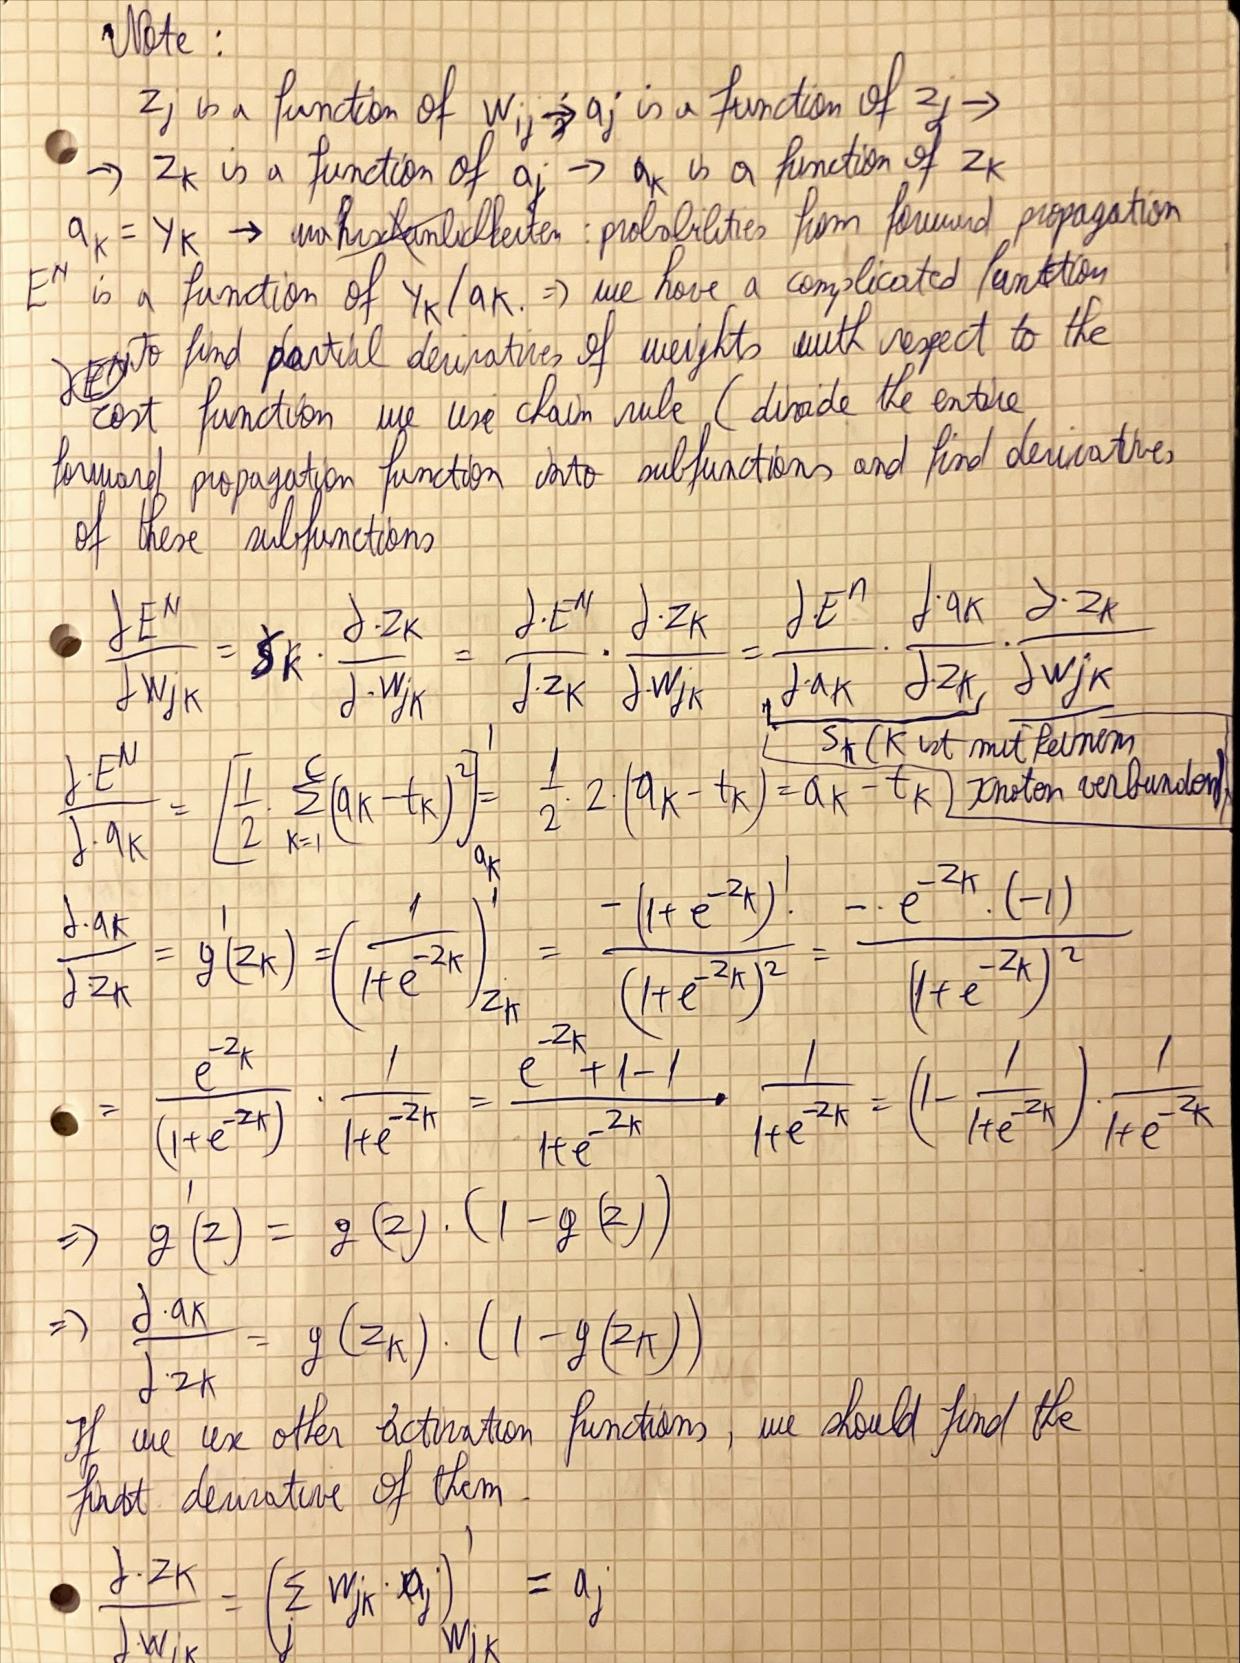 Note :
zj is a function of wij → aj is a function of zj →
→ zK is a function of aj → aK is a function of zK
aK = yK → : probabilities from forward propagation
E^N is a function of yK/aK. => we have a complicated function
to find partial derivatives of weights with respect to the
cost function we use chain rule ( divide the entire
forward propagation function into subfunctions and find derivatives
of these subfunctions
∂E^N/∂wjK = δK · ∂·zK/∂·wjK = ∂·E^N/∂·zK · ∂·zK/∂·wjK = ∂·E^n/∂·aK · ∂·aK/∂·zK · ∂·zK/∂wjK
δK (K ist mit keinem
Knoten verbunden)
∂·E^N/∂·aK = [1/2 · Σ_{K=1}^{C} (aK - tK)^2]'_{aK} = 1/2 · 2 · (aK - tK) = aK - tK
∂·aK/∂·zK = g'(zK) = (1/(1+e^{-zK}))'_{zK} = -(1+e^{-zK})'·/(1+e^{-zK})^2 = -·e^{-zK}·(-1)/(1+e^{-zK})^2
= e^{-zK}/(1+e^{-zK}) · 1/(1+e^{-zK}) = (e^{-zK}+1-1)/(1+e^{-zK}) · 1/(1+e^{-zK}) = (1 - 1/(1+e^{-zK})) · 1/(1+e^{-zK})
=> g'(z) = g(z) · (1 - g(z))
=> ∂·aK/∂·zK = g(zK) · (1 - g(zK))
If we use other activation functions, we should find the
first derivative of them.
∂·zK/∂·wjK = (Σ_j wjK · aj)'_{wjK} = aj